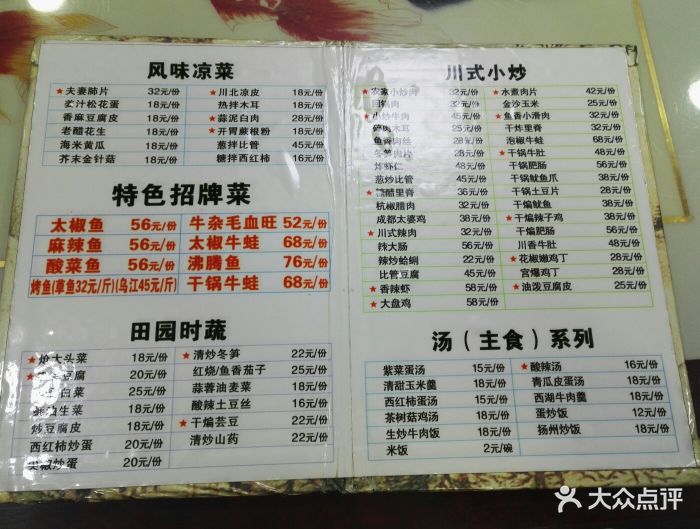 风味凉菜
★夫妻肺片 32元/份 ★川北凉皮 18元/份
扩汁松花蛋 18元/份 热拌木耳 18元/份
香麻豆腐皮 18元/份 ★蒜泥白肉 28元/份
老醋花生 18元/份 ★开胃蕨根粉 18元/份
海米黄瓜 18元/份 葱拌比管 45元/份
芥末金针菇 18元/份 糖拌西红柿 16元/份
特色招牌菜
太椒鱼 56元/份 牛杂毛血旺 52元/份
麻辣鱼 56元/份 太椒牛蛙 68元/份
酸菜鱼 56元/份 沸腾鱼 76元/份
烤鱼(草鱼32元/斤)(乌江45元/斤) 干锅牛蛙 68元/份
田园时蔬
★炝大头菜 18元/份 ★清炒冬笋 22元/份
豆腐 20元/份 红烧/鱼香茄子 25元/份
白菜 25元/份 蒜蓉油麦菜 18元/份
生菜 18元/份 酸辣土豆丝 16元/份
炒豆腐皮 18元/份 ★干煸芸豆 22元/份
西红柿炒蛋 20元/份 清炒山药 22元/份
尖椒炒蛋 20元/份
川式小炒
★农家小炒肉 32元/份 ★水煮肉片 42元/份
回锅肉 32元/份 金沙玉米 25元/份
★小炒牛肉 45元/份 ★鱼香小滑肉 32元/份
碎肉木耳 25元/份 干炸里脊 32元/份
鱼香肉丝 28元/份 泡椒牛蛙 68元/份
冬笋肉片 28元/份 ★干锅牛肚 48元/份
炸虾仁 58元/份 干锅肥肠 56元/份
葱炒比管 45元/份 干锅鱿鱼爪 38元/份
★糖醋里脊 36元/份 干锅土豆片 28元/份
杭椒腊肉 32元/份 干煸鱿鱼 38元/份
成都太婆鸡 38元/份 ★干煸辣子鸡 38元/份
★川式辣肉 32元/份 干煸肥肠 56元/份
辣大肠 56元/份 川香牛肚 48元/份
辣炒蛤蜊 22元/份 ★花椒嫩鸡丁 38元/份
比管豆腐 45元/份 宫爆鸡丁 28元/份
★香辣虾 58元/份 ★油泼豆腐皮 25元/份
★大盘鸡 58元/份
汤（主食）系列
紫菜蛋汤 15元/份 ★酸辣汤 16元/份
清甜玉米羹 15元/份 青瓜皮蛋汤 18元/份
西红柿蛋汤 15元/份 西湖牛肉羹 20元/份
茶树菇鸡汤 18元/份 蛋炒饭 12元/份
生炒牛肉饭 18元/份 扬州炒饭 18元/份
米饭 2元/碗
大众点评